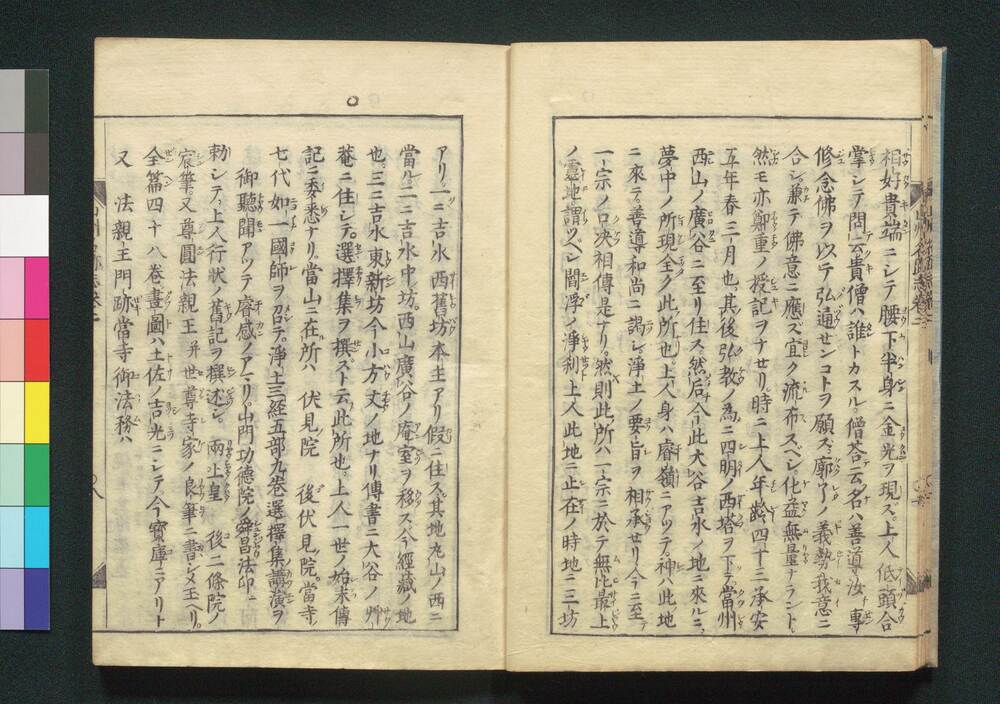 相好貴端ニシテ腰下半身ニ金光ヲ現ズ上人低頭合
掌シテ問云貴僧ハ誰トカスル僧荅云名ハ善導汝專
修念佛ヲ以テ弘通センコトヲ願ズ廓ノ義勢我意ニ
合シ兼テ佛意ニ應ズ宜ク流布スベシ化益無量ナラント
然モ亦鄭重ノ授記ヲナセリ時ニ上人年齡四十三承安
五年春三月也其後弘教ノ為ニ四明ノ西塔ヲ下テ當州
西山ノ廣谷ニ至リ住ス然后今此大谷吉水ノ地ニ來ルニ
夢中ノ所現全ク此所也上人身ハ睿嶺ニアツテ神ハ此地
ニ來テ善導和尚ニ謁シ淨土ノ要旨ヲ相承セリ今ニ至テ
一宗ノ口决相傳是ナリ然則此所ハ一宗ニ於テ無比最上
ノ靈地謂ツベシ閻浮ノ淨刹上人此地ニ正在ノ時地ニ三坊
アリ一ニ吉水西舊坊本主アリ假ニ住ス其地丸山ノ西ニ
當ル二ニ吉水中坊西山廣谷ノ庵室ヲ移ス今經藏ノ地
也三ニ吉水東新坊今小方丈ノ地ナリ傳書ニ大谷ノ艸
菴ニ住シテ選擇集ヲ撰ズト云此所也上人一世ノ始末傳
記ニ委悉ナリ當山ニ在所ハ 伏見院 後伏見院當寺
七代如一國師ヲ召テ淨土三経五部九巻選擇集講演ヲ
御聽聞アツテ睿感ノアマリ山門功德院ノ舜昌法印ニ
勅シテ上人行状ノ舊記ヲ撰述シ 兩上皇 後二條院ノ
宸筆又尊圓法親王并世尊寺家ノ良筆ニ書シメ玉ヘリ
全篇四十八巻畫圖ハ土佐吉光ニシテ今寶庫ニアリト
又 法親王門跡當寺御法務ハ